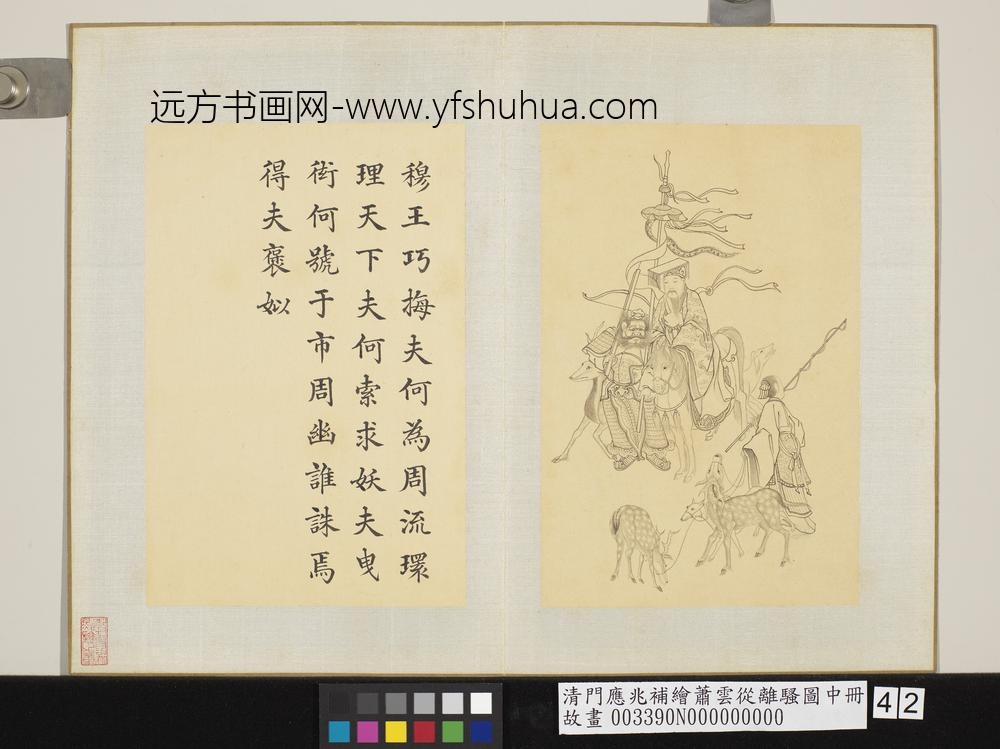 远方书画网-www.yfshuhua.com
穆王巧梅夫何為周流環
理天下夫何索求妖夫曳
衒何號于市周幽誰誅焉
得夫褒姒
清門應兆補繪蕭雲從離騷圖中冊
故畫 003390N000000000
42